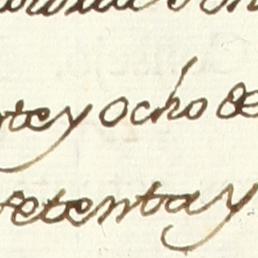 nte y ocho de
setenta y